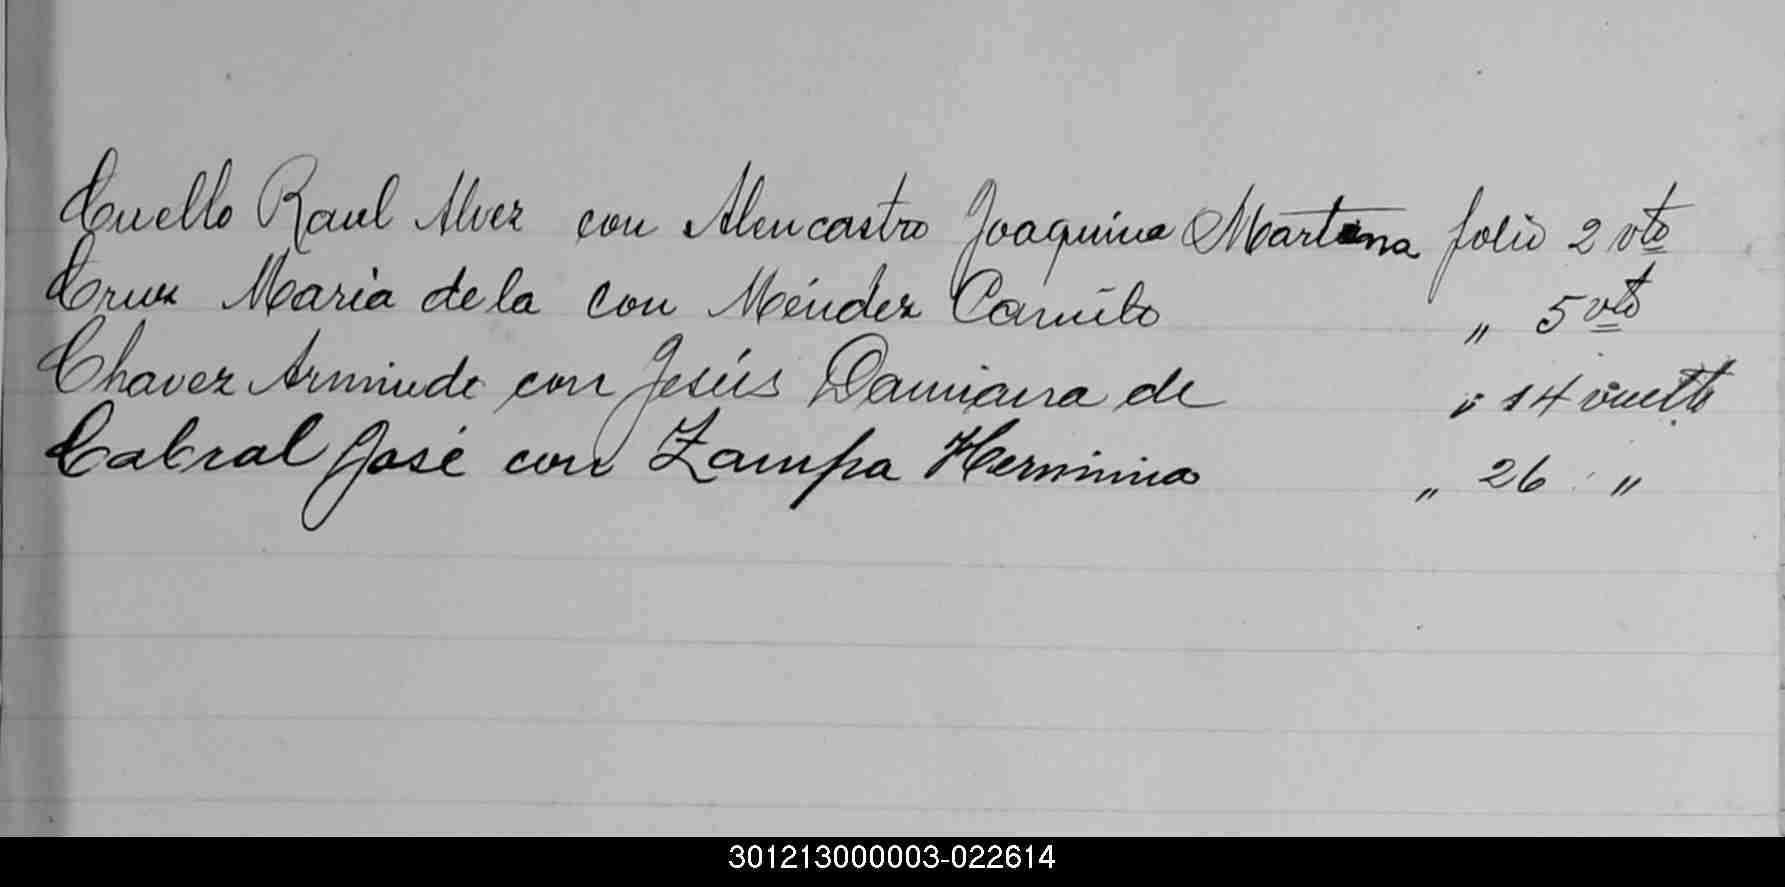 Cuello Raul Alvez con Alencastro Joaquina Martina folio 2 vto
Cruz Maria de la con Méndez Camilo " 5 vto
Chavez Arminde con Jesús Damiana de " 14 vuelto
Cabral José con Zampa Herminia " 26 "
301213000003-022614